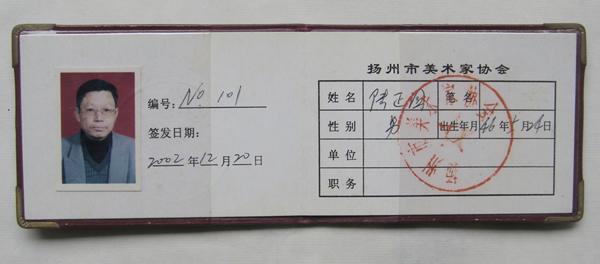 编号: No 101
签发日期:
2002年12月20日
扬州市美术家协会
姓名 陆正 笔名
性别 男 出生年月 46年 月24日
单位
职务